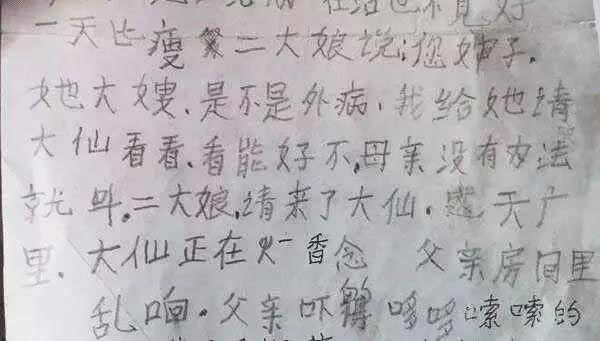 在治也不见好
一天也瘦繁二大娘说;您婶子.
她大嫂.是不是外病.我给她请
大仙看看.看能好不,母亲没有方法
就叫.二大娘.请来了大仙. 天广
里.大仙正在火一香念 父亲房间里
乱响.父亲吓得的哆哆嗦嗦的